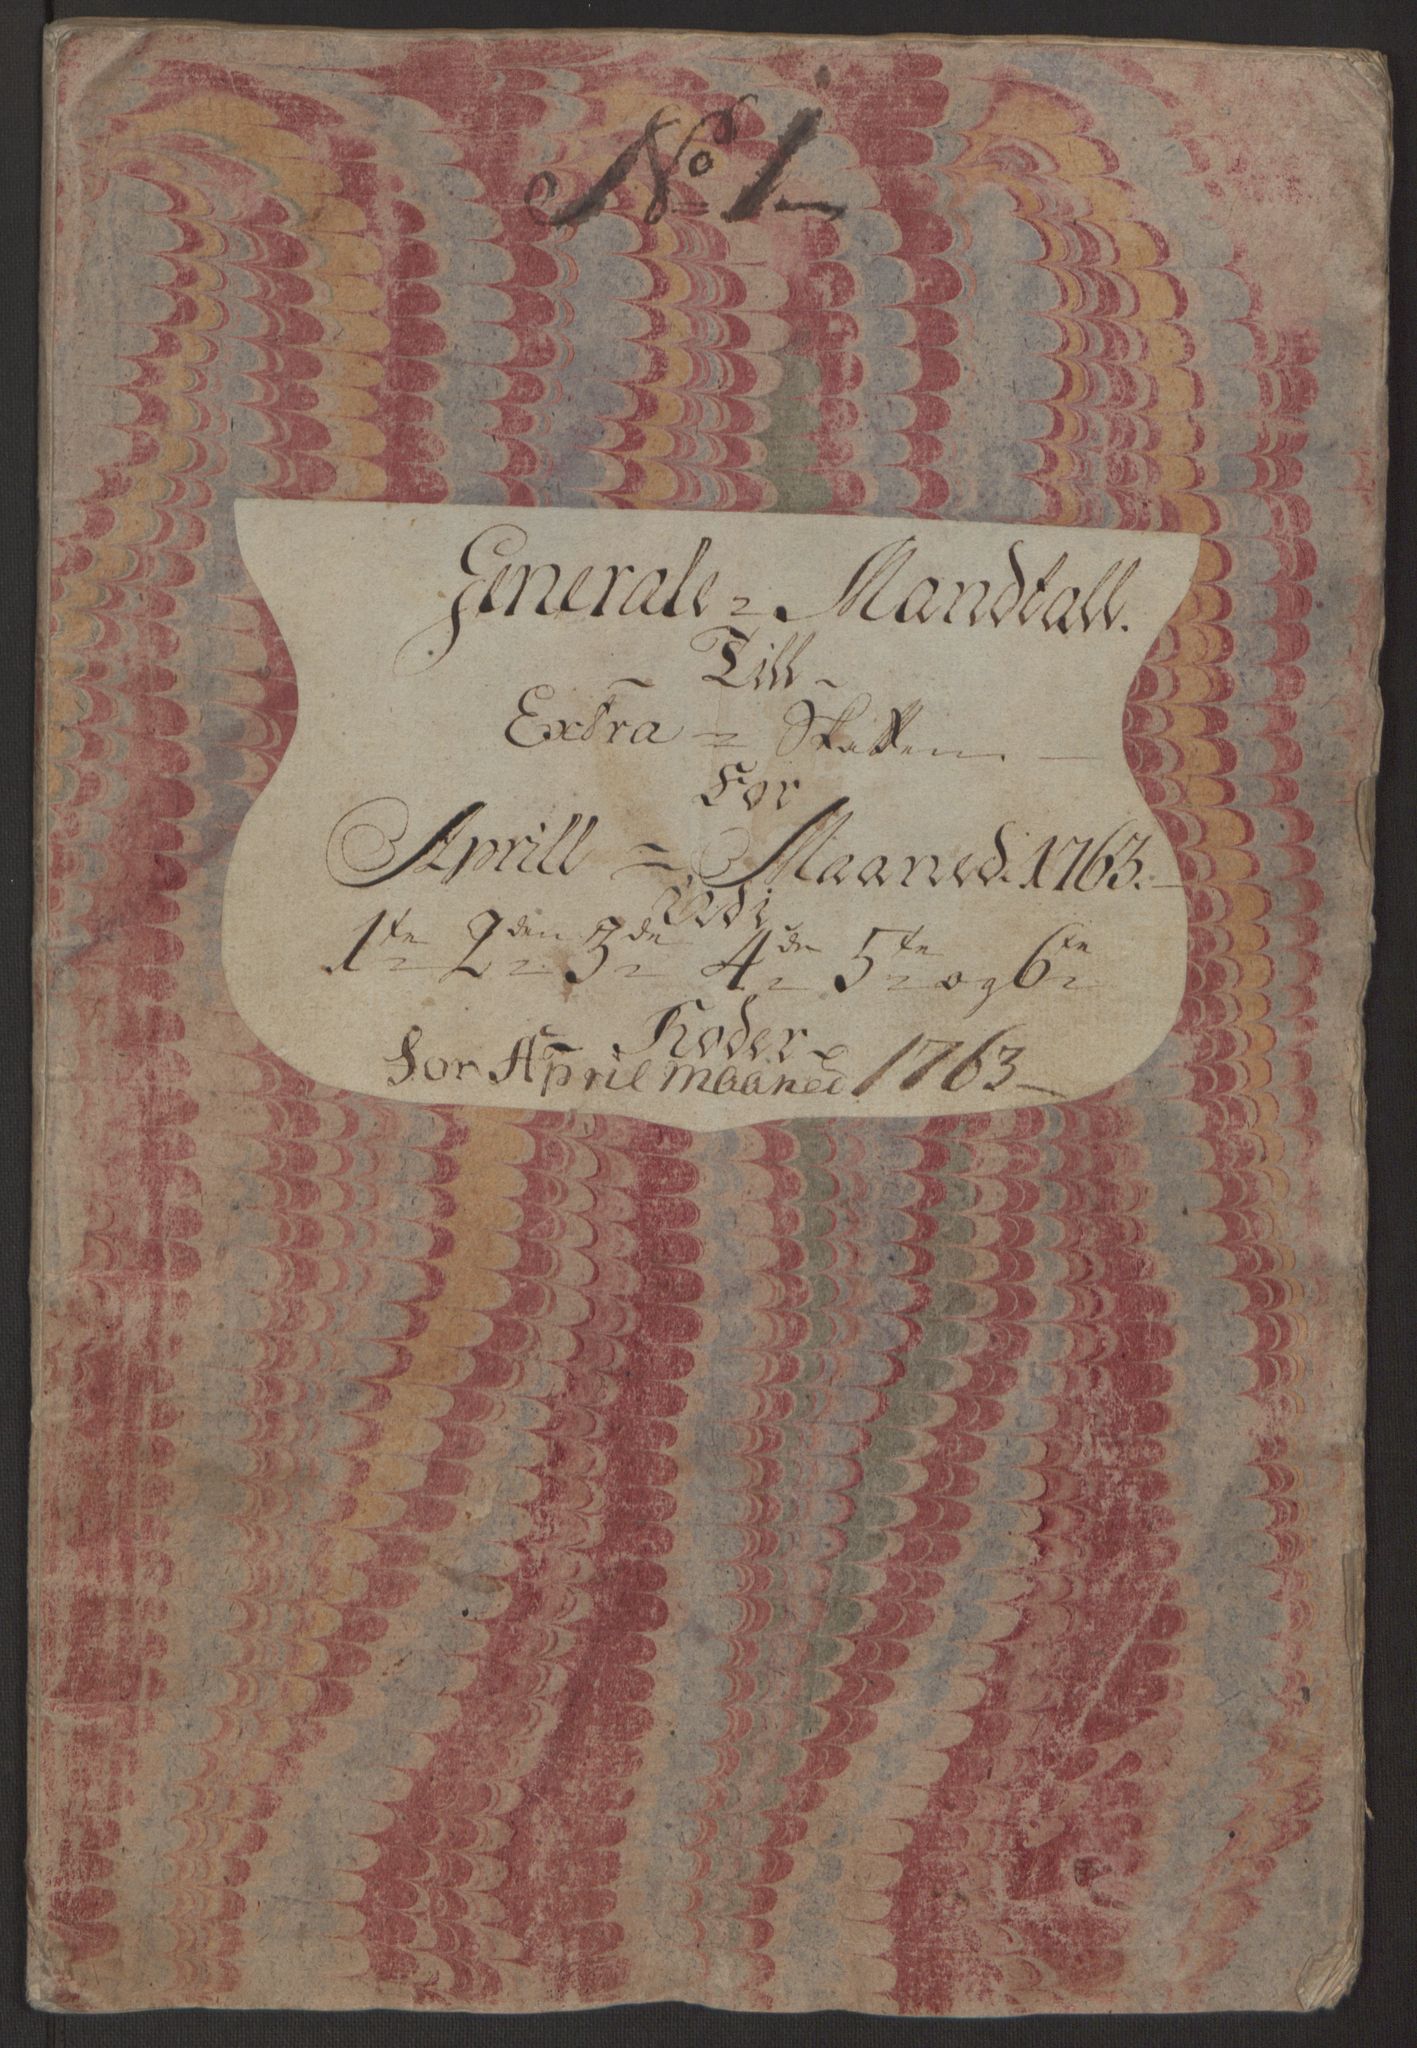 No 1
Generale = Mandtall.
Till
Extra = Skatten
For
Aprill = Maaned. 1763.
Udi
1te 2den 3de 4de 5te og 6te
Roder
for April Maaned 1763